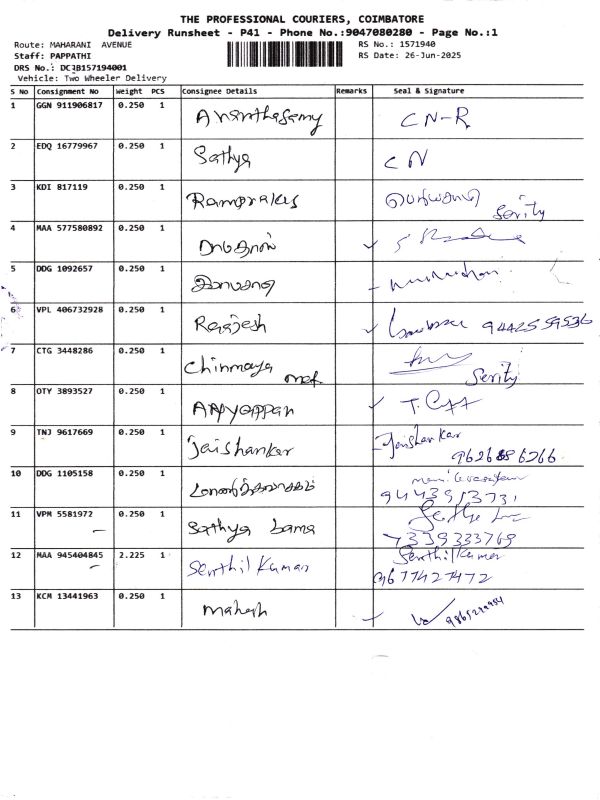 THE PROFESSIONAL COURIERS, COIMBATORE
Delivery Runsheet - P41 - Phone No.:9047080280 - Page No.:1
Route: MAHARANI AVENUE
RS No.: 1571940
Staff: PAPPATHI
RS Date: 26-Jun-2025
DRS No.: DCJB157194001
Vehicle: Two Wheeler Delivery
S No Consignment No Weight PCS Consignee Details Remarks Seal & Signature
1 GGN 911906817 0.250 1 Ananthasamy CN-R
2 EDQ 16779967 0.250 1 Sathya CN
3 KDI 817119 0.250 1 Ramprakas Serity
4 MAA 577580892 0.250 1
5 DDG 1092657 0.250 1
6 VPL 406732928 0.250 1 Raajesh 9442559536
7 CTG 3448286 0.250 1 Chinmaya Serity
8 OTY 3893527 0.250 1 Ayyappan
9 TNJ 9617669 0.250 1 Jaishanker Jaishankar
10 DDG 1105158 0.250 1
11 VPM 5581972 0.250 1 Sathya bama 7339333769
12 MAA 945404845 2.225 1 Senthil Kumar Senthil Kumar
9677427472
13 KCM 13441963 0.250 1 Mahesh